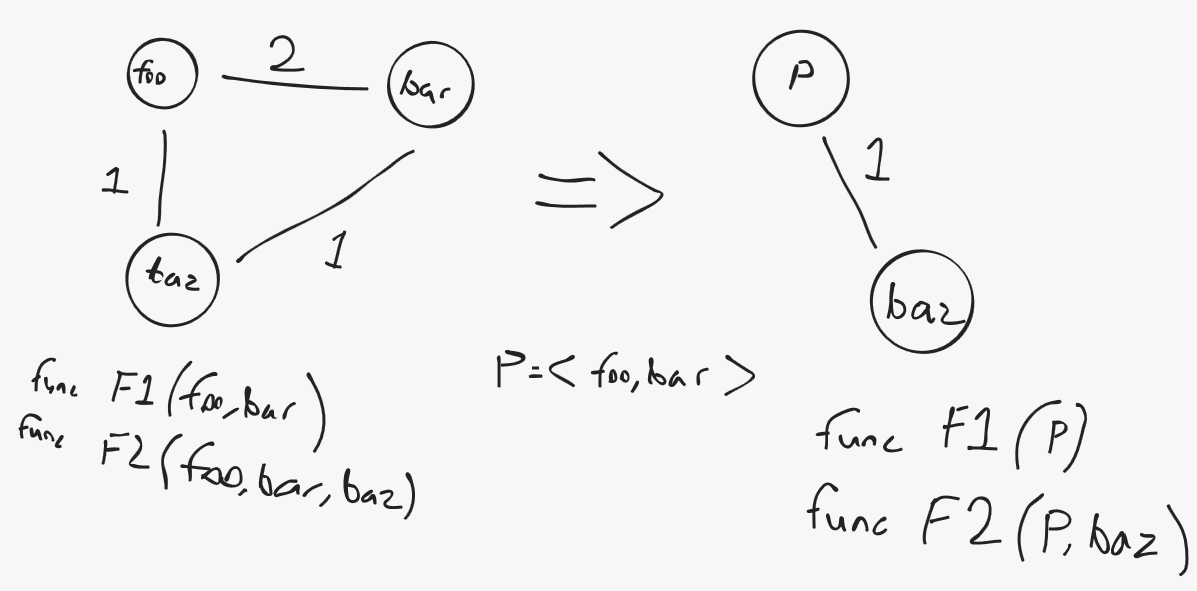 foo
2
bar
1
taz
1
func F1(foo,bar)
func F2(foo,bar,baz)
=>
P=< foo,bar >
P
1
baz
func F1(P)
func F2(P,baz)